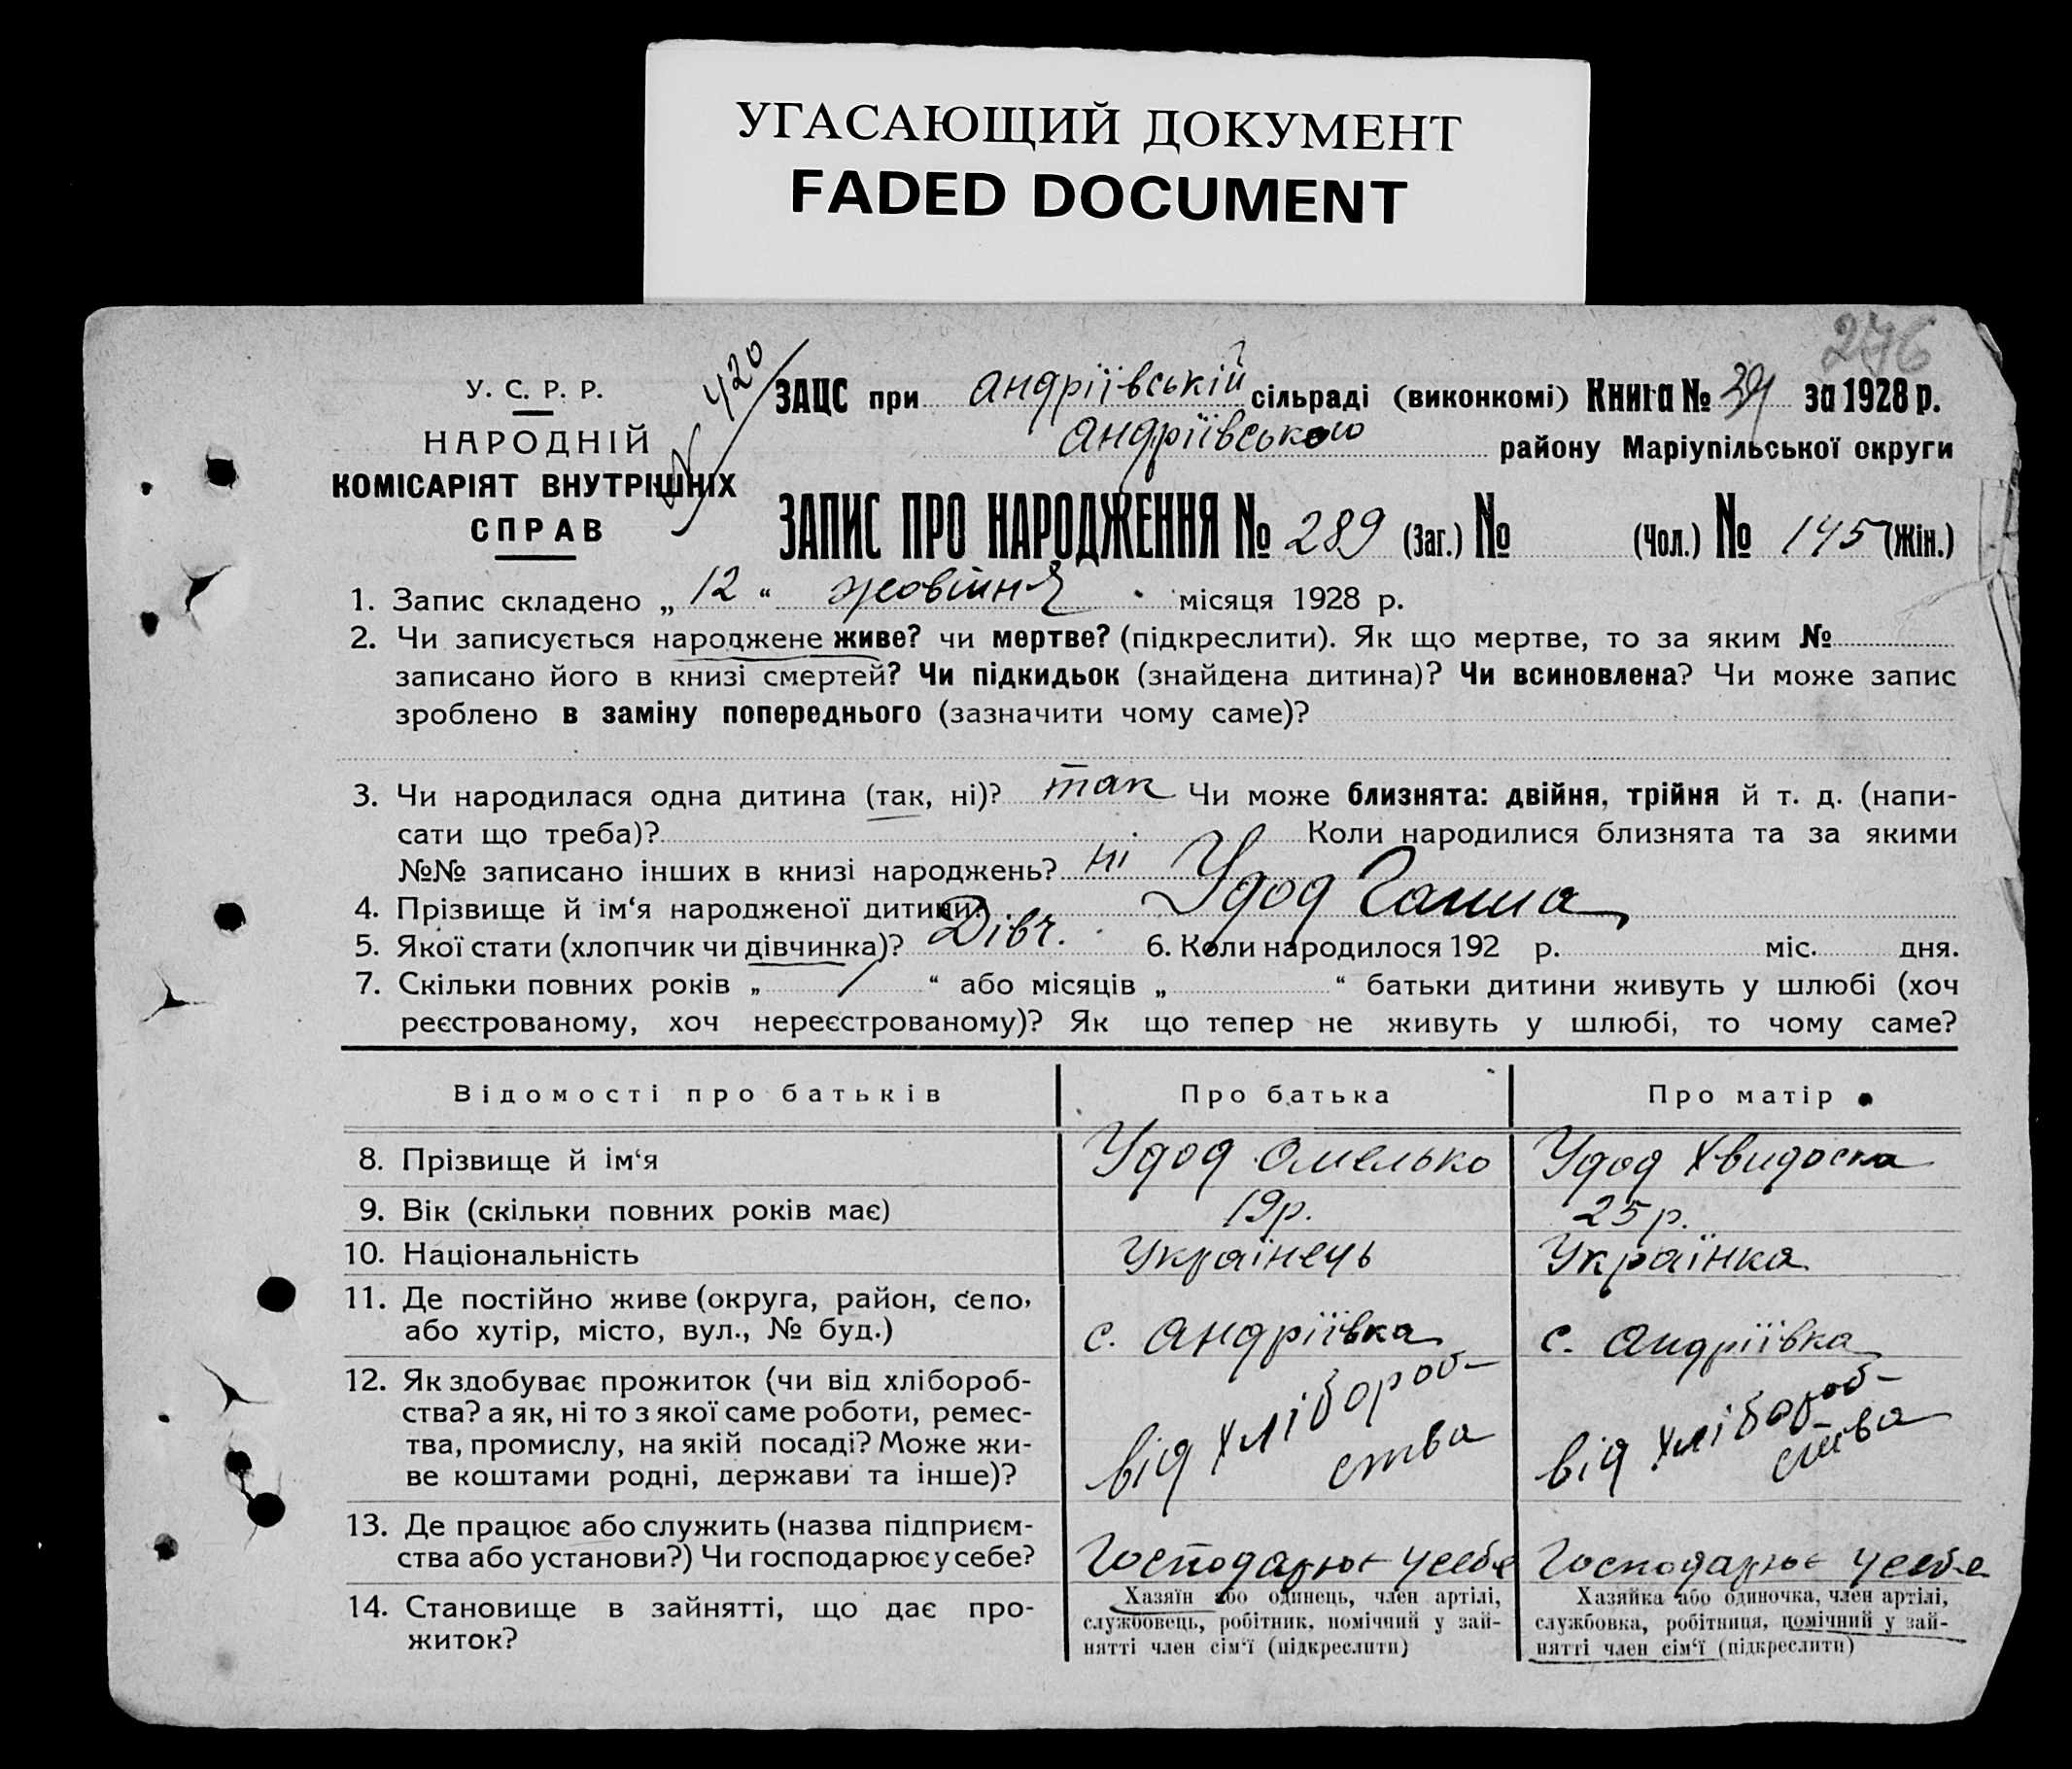 УГАСАЮЩИЙ ДОКУМЕНТ
FADED DOCUMENT
276
У. С. Р. Р.
НАРОДНІЙ
КОМІСАРІЯТ ВНУТРІШНІХ
СПРАВ
420
ЗАЦС при Андріївській сільраді (виконкомі) Книга № за 1928 р.
Андріївського району Маріупільської округи
ЗАПИС ПРО НАРОДЖЕННЯ № 289 (Заг.) № (Чол.) № 145 (Жін.)
1. Запис складено „ 12 “ жовтня місяця 1928 р.
2. Чи записується народжене живе? чи мертве? (підкреслити). Як що мертве, то за яким №
записано його в книзі смертей? Чи підкидьок (знайдена дитина)? Чи всиновлена? Чи може запис
зроблено в заміну попереднього (зазначити чому саме)?
3. Чи народилася одна дитина (так, ні)? так Чи може близнята: двійня, трійня й т. д. (напи-
сати що треба)? Коли народилися близнята та за якими
№№ записано інших в книзі народжень? ні
4. Прізвище й ім‘я народженої дитини: Удод Ганна
5. Якої стати (хлопчик чи дівчинка)? Дівч. 6. Коли народилося 192 р. міс. дня.
7. Скільки повних років „ 1 “ або місяців „ “ батьки дитини живуть у шлюбі (хоч
реєстрованому, хоч нереєстрованому)? Як що тепер не живуть у шлюбі, то чому саме?
Відомості про батьків Про батька Про матір
8. Прізвище й ім‘я Удод Омелько Удод Хвидоска
9. Вік (скільки повних років має) 19р. 25р.
10. Національність Українець Українка
11. Де постійно живе (округа, район, село,
або хутір, місто, вул., № буд.) с. Андріївка с. Андріївка
12. Як здобуває прожиток (чи від хлібороб-
ства? а як, ні то з якої саме роботи, ремес-
тва, промислу, на якій посаді? Може жи-
ве коштами родні, держави та інше)?
від хлібороб-
ства
від хлібороб-
ства
13. Де працює або служить (назва підприєм-
ства або установи?) Чи господарює у себе? Господарює у себе Господарює у себе
14. Становище в зайнятті, що дає про-
житок?
Хазяїн або одинець, член артілі,
службовець, робітник, помічний у зай-
нятті член сім‘ї (підкреслити)
Хазяйка або одиночка, член артілі,
службовка, робітниця, помічний у зай-
нятті член сім‘ї (підкреслити)